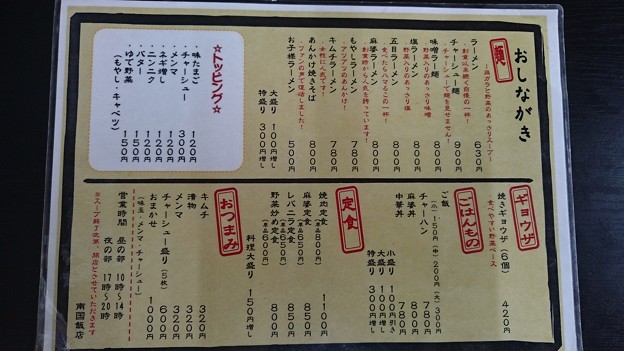 おしながき
麺
ラーメン 630円
~豚ガラと野菜のあっさりスープ~
チャーシュー麺 900円
味噌ラー麺 800円
野菜入りのあっさり味噌
塩ラーメン 800円
野菜入りのあっさり塩
五目ラーメン 800円
麻婆ラーメン 800円
もやしラーメン 780円
アツアツのあんかけ!
キムチラーメン 780円
女性に人気です!
あんかけ焼きそば 800円
ファンの声で復活しました!
お子様ラーメン 500円
大盛り 100円増し
特盛り 300円増し
☆トッピング☆
・味たまご 120円
・チャーシュー 300円
・メンマ 120円
・ネギ増し 120円
・ニンニク 120円
・バター 150円
・ゆで野菜 150円
(もやし・キャベツ)
ギョウザ
焼きギョウザ(6個) 420円
食べやすい野菜ベース
ごはんもの
ご飯 (小)150円(中)200円(大)300円
チャーハン 780円
麻婆丼 800円
中華丼 780円
小盛り 100円引き
大盛り 100円増し
特盛り 300円増し
定食
焼肉定食 1100円
(単品800円)
麻婆定食 850円
(単品650円)
レバニラ定食 850円
(単品650円)
野菜炒め定食 800円
(単品600円)
料理大盛り 150円増し
おつまみ
キムチ 320円
漬物 320円
メンマ 320円
チャーシュー盛り(5枚) 600円
おまかせ 1000円
(味玉・メンマ・チャーシュー)
営業時間 昼の部 10時~14時
夜の部 17時~20時
※スープ終了次第、閉店とさせていただきます
南国飯店